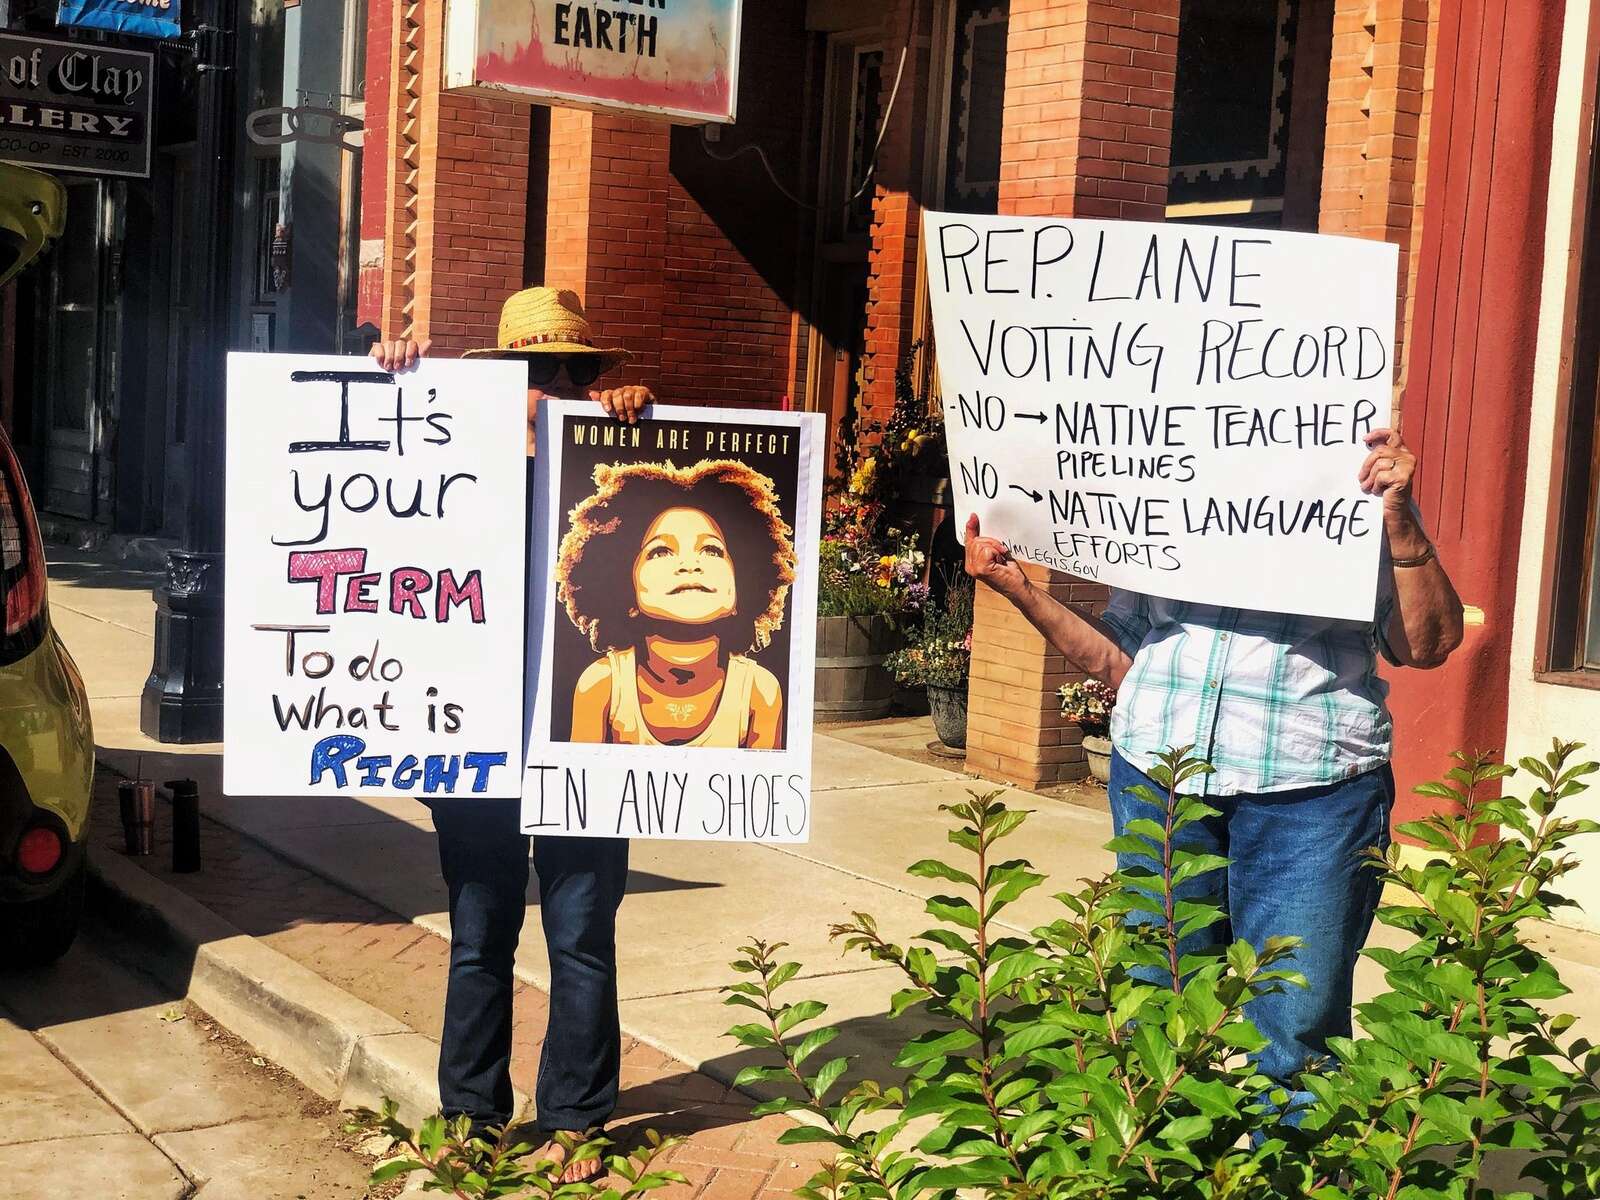 of Clay
CO-OP EST 2000
EARTH
It's
your
TERM
To do
What is
RIGHT
WOMEN ARE PERFECT
IN ANY SHOES
REP. LANE
VOTING RECORD
-NO → NATIVE TEACHER
PIPELINES
NO → NATIVE LANGUAGE
EFFORTS
NMLEGIS.GOV